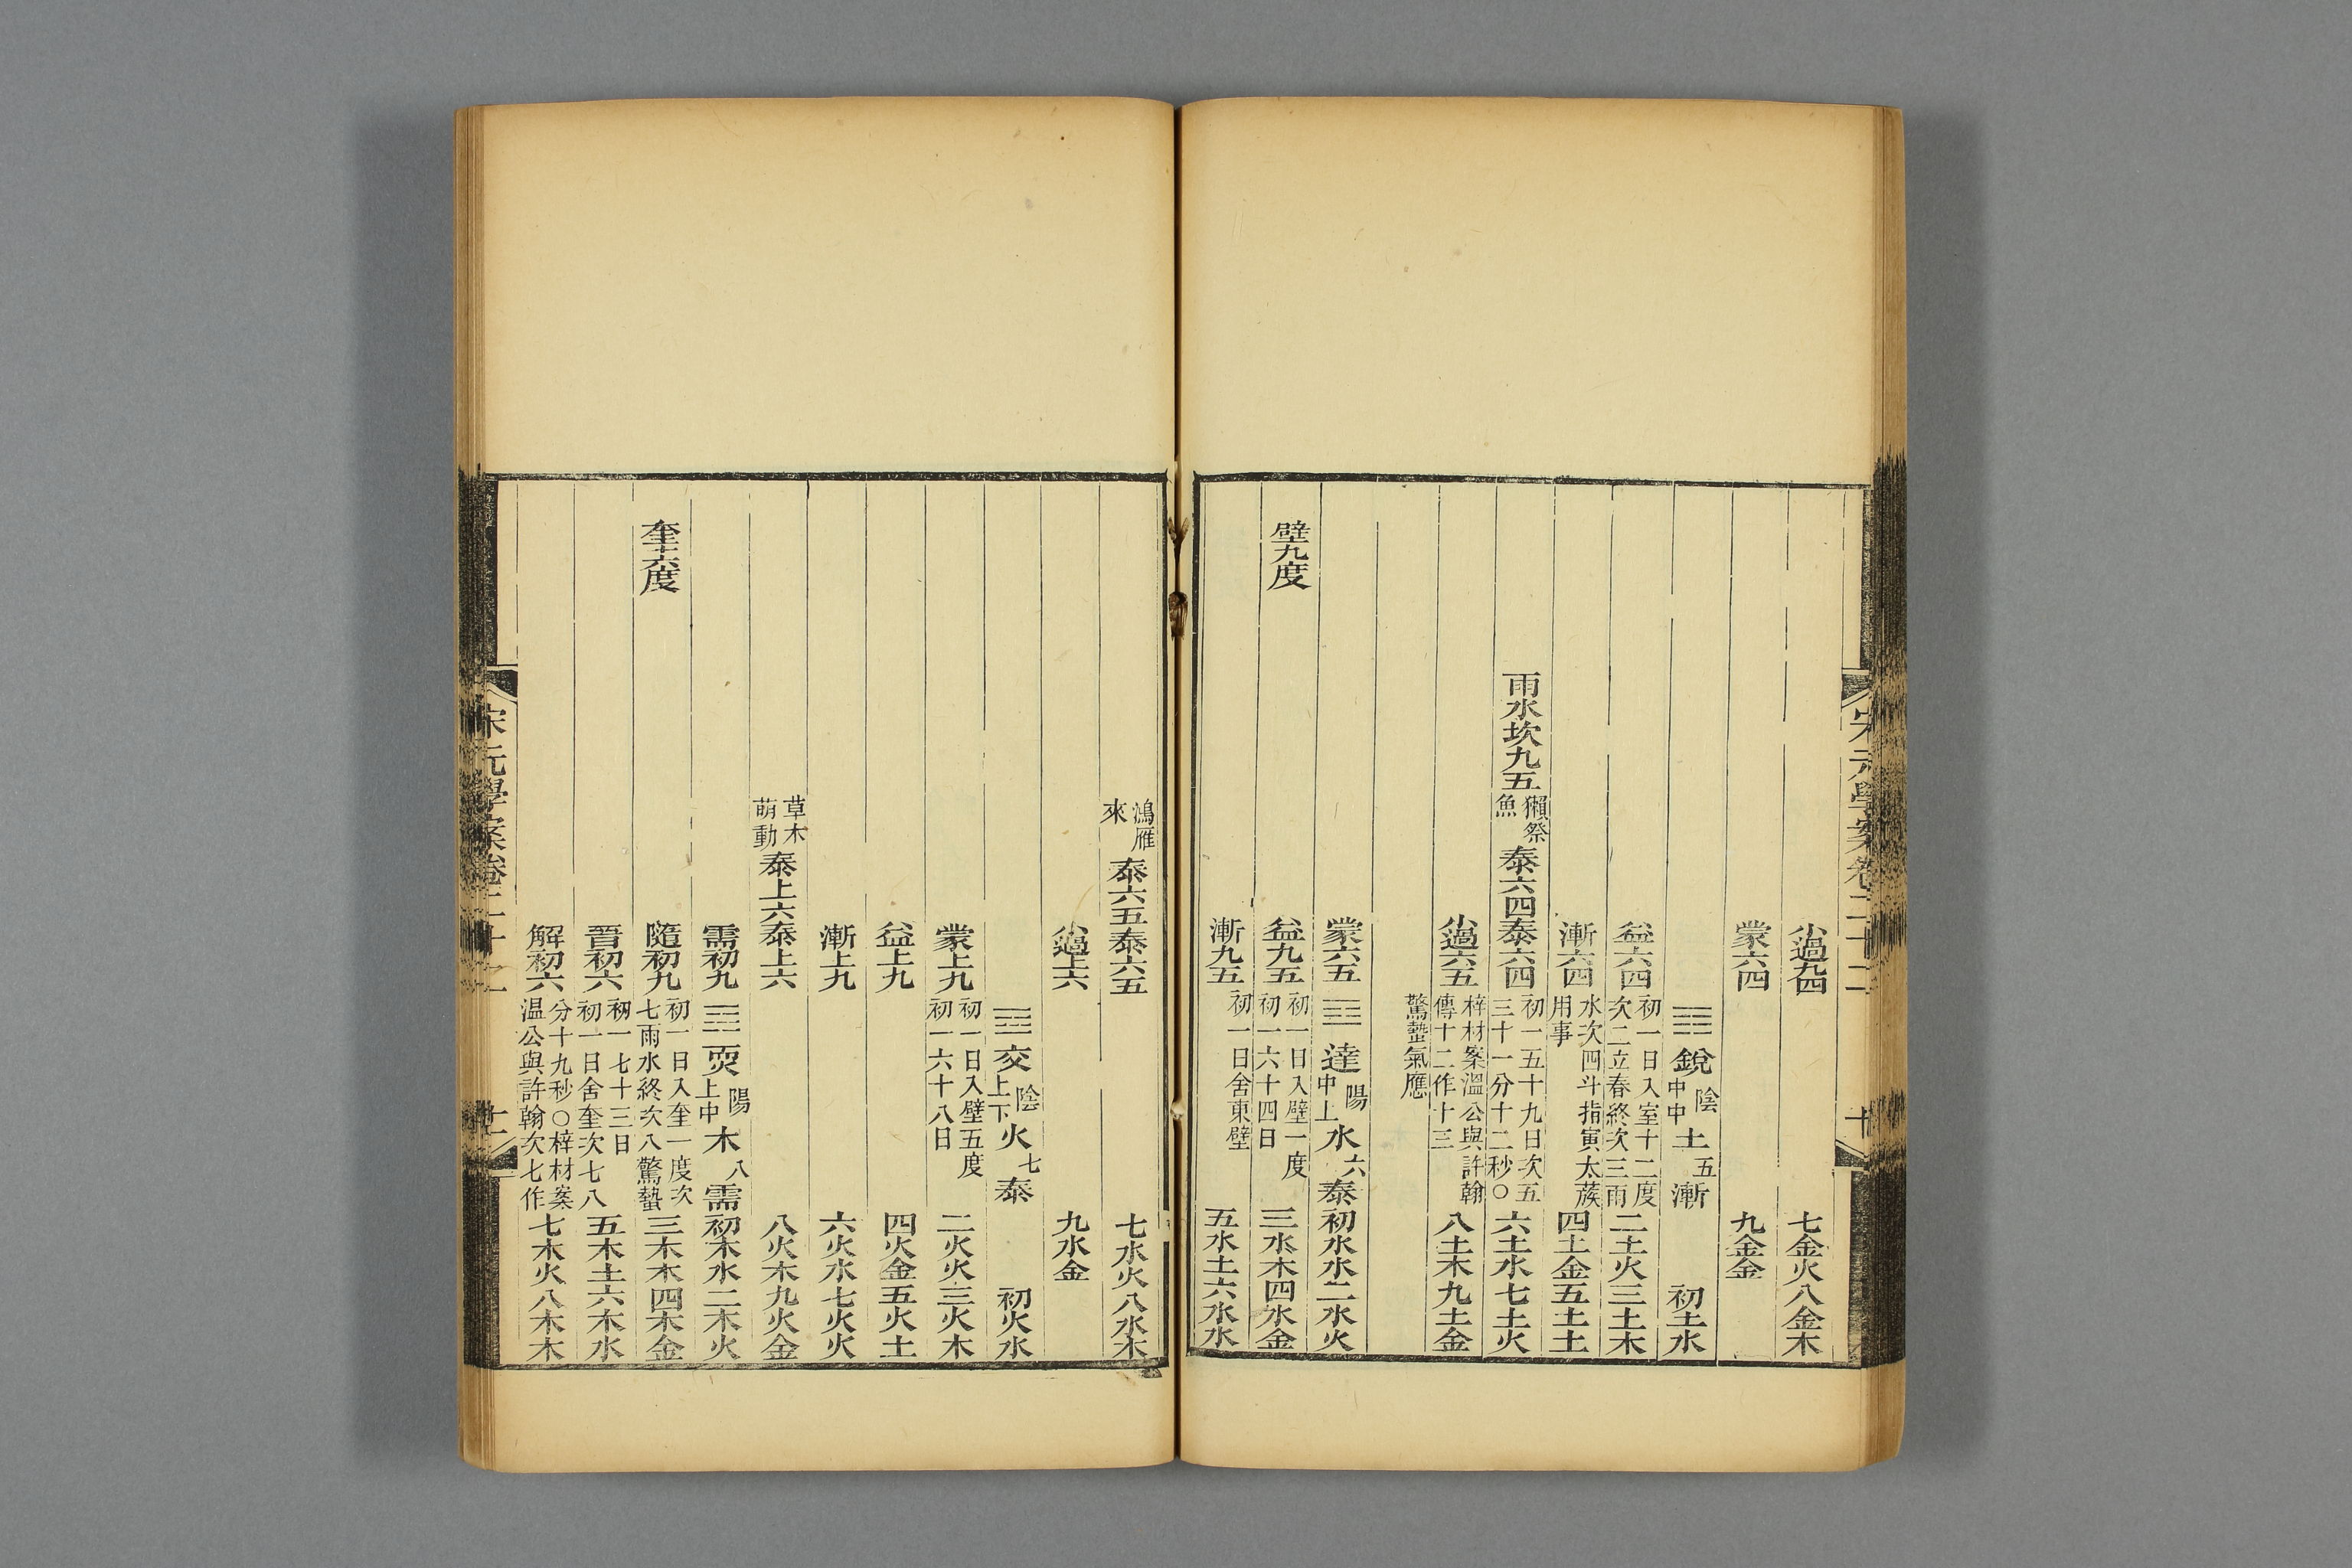 宋元學案卷二十二 十
小過九四 七金火八金木
蒙六四 九金金
銳 陰中中 土 五 漸 初土水
益六四 初一日入室十二度次二立春終次三雨 二土火三土木
漸六四 水次四斗指寅太蔟用事 四土金五土土
雨水坎九五 獺祭魚 泰六四泰六四 初一五十九日次五三十一分十二秒○ 六土水七土火
小過六五 梓材案溫公與許翰傳十二作十三 八土木九土金
驚蟄氣應
蒙六五 達 陽中上 水 六 泰 初水水二水火
壁九度 益九五 初一日入壁一度初一六十四日 三水木四水金
漸九五 初一日舍東壁 五水土六水水
鴻雁來 泰六五泰六五 七水火八水木
小過上六 九水金
交 陰上下 火 七 泰 初火水
蒙上九 初一日入壁五度初一六十八日 二火火三火木
益上九 四火金五火土
漸上九 六火水七火火
草木萌動 泰上六泰上六 八火木九火金
需初九 耎 陽上中 木 八 需 初木水二木火
奎十六度 隨初九 初一日入奎一度次七雨水終次八驚蟄 三木木四木金
晉初六 初一七十三日初一日舍奎次七八 五木土六木水
解初六 分十九秒○梓材案溫公與許翰次七作 七木火八木木
宋元學案卷二十二 十一